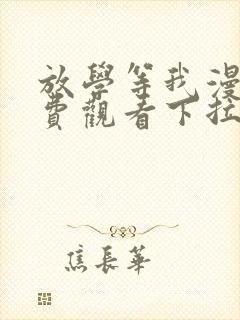 放學等我漫
費觀看下拉
焦長華